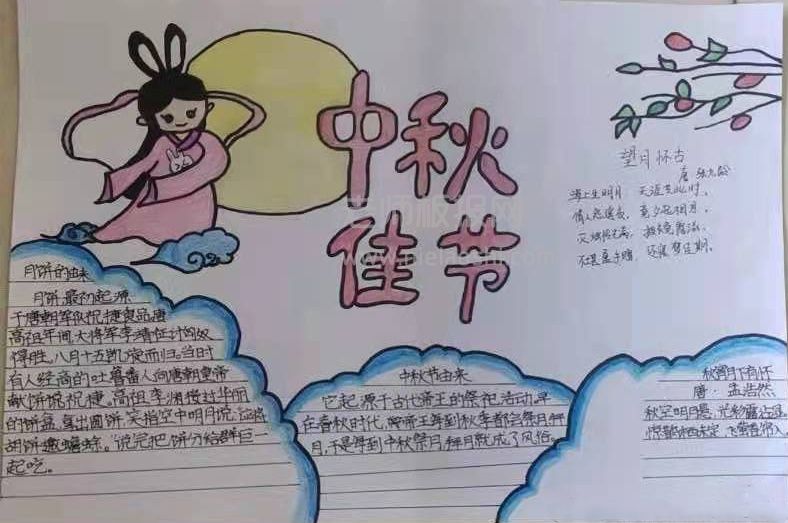 中秋
佳节
望月怀古
唐 张九龄
海上生明月,天涯共此时。
情人怨遥夜,竟夕起相思。
灭烛怜光满,披衣觉露滋。
不堪盈手赠,还寝梦佳期。
月饼的由来
月饼最初起源
于唐朝军队祝捷食品唐
高祖年间,大将军李靖征讨匈奴
得胜,八月十五凯旋而归。当时
有人经商的吐鲁番人向唐朝皇帝
献饼祝捷。高祖李渊接过华丽
的饼盒,拿出圆饼,笑指空中明月说:应将
胡饼邀蟾蜍。说完把饼分给群臣一
起吃。
中秋节由来
它起源于古代帝王的祭祀活动,早
在春秋时代,帝王每到秋季都会祭月拜
月,于是每到中秋祭月、拜月就成了风俗。
秋宵月下有怀
唐·孟浩然
秋空明月悬,光彩露沾湿。
惊鹊栖未定,飞萤卷帘入。
老师板报网